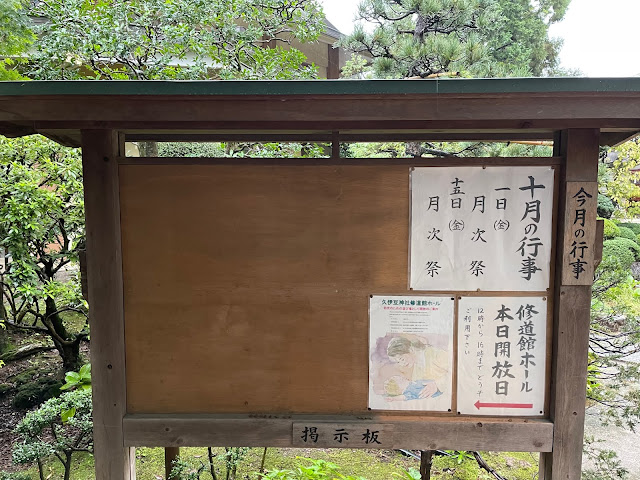 今月の行事
十月の行事
一日㈮
月次祭
十五日㈮
月次祭
修道館ホール
本日開放日
12時から16時までどうぞ
ご利用下さい
久伊豆神社修道館ホール
掲示板